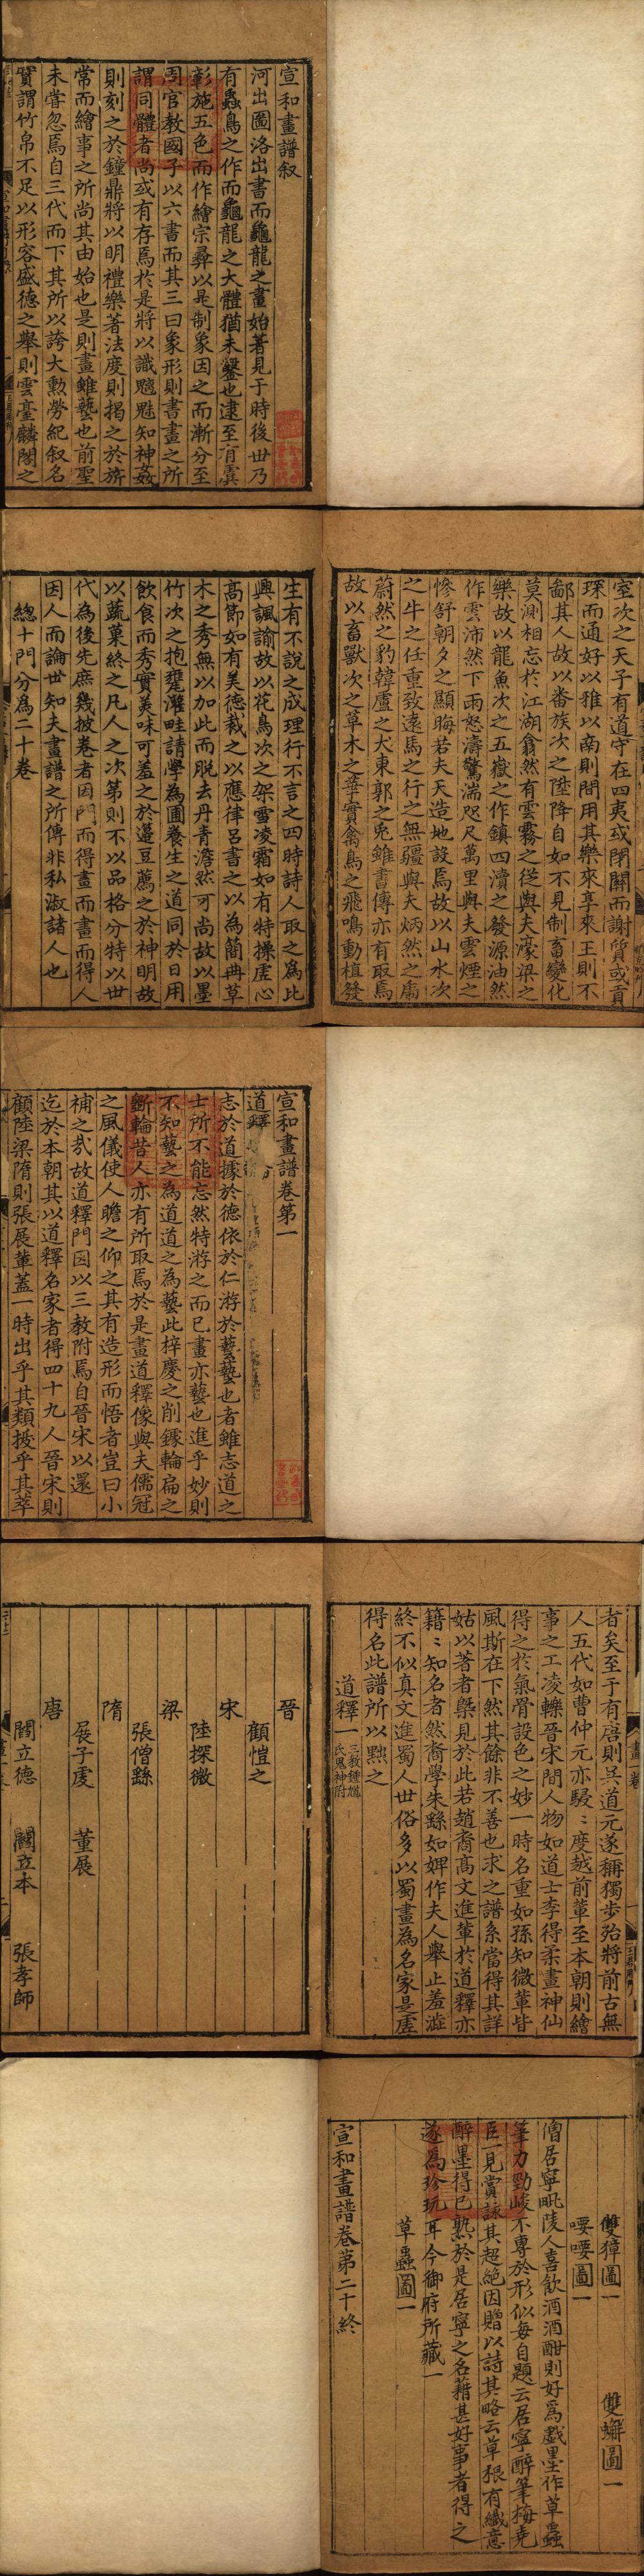 宣和畫譜叙
河出圖洛出書而龜龍之畫始著見于時後世乃
有蟲鳥之作而龜龍之大體猶未鑿也逮至有虞
彰施五色而作繪宗彞以是制象因之而漸分至
周官教國子以六書而其三曰象形則書畫之所
謂同體者尚或有存焉於是將以識魑魅知神姦
則刻之於鐘鼎將以明禮樂著法度則揭之於旂
常而繪事之所尚其由始也是則畫雖藝也前聖
未嘗忽焉自三代而下其所以誇大勲勞紀叙名
實謂竹帛不足以形容盛德之舉則雲臺麟閣之
室次之天子有道守在四夷或閉關而謝質或貢
琛而通好以雅以南則間用其樂來享來王則不
鄙其人故以番族次之陞降自如不見制畜變化
莫測相忘於江湖翕然有雲霧之從與夫濠梁之
樂故以龍魚次之五嶽之作鎮四瀆之發源油然
作雲沛然下雨怒濤驚湍咫尺萬里與夫雲煙之
慘舒朝夕之顯晦若夫天造地設焉故以山水次
之牛之任重致遠馬之行之無疆與夫炳然之虎
蔚然之豹韓盧之犬東郭之兎雖書傳亦有取焉
故以畜獸次之草木之華實禽鳥之飛鳴動植發
生有不說之成理行不言之四時詩人取之為比
興諷諭故以花鳥次之架雪凌霜如有特操虚心
高節如有美德裁之以應律呂書之以為簡冊草
木之秀無以加此而脱去丹青澹然可尚故以墨
竹次之抱甕灌畦請學為圃養生之道同於日用
飲食而秀實美味可羞之於籩豆薦之於神明故
以蔬菓終之凡人之次第則不以品格分特以世
代為後先庶幾披卷者因門而得畫而畫而得人
因人而論世知夫畫譜之所傳非私淑諸人也
總十門分爲二十卷
宣和畫譜卷第一
道釋
志於道據於德依於仁游於藝藝也者雖志道之
士所不能忘然特游之而已畫亦藝也進乎妙則
不知藝之為道道之為藝此梓慶之削鐻輪扁之
斲輪昔人亦有所取焉於是畫道釋像與夫儒冠
之風儀使人瞻之仰之其有造形而悟者豈曰小
補之哉故道釋門因以三教附焉自晉宋以還
迄於本朝其以道釋名家者得四十九人晉宋則
顧陸梁隋則張展輩蓋一時出乎其類拔乎其萃
者矣至于有唐則吳道元遂稱獨步殆將前古無
人五代如曹仲元亦駸駸度越前輩至本朝則繪
事之工凌轢晉宋間人物如道士李得柔畫神仙
得之於氣骨設色之妙一時名重如孫知微輩皆
風斯在下然其餘非不善也求之譜系當得其詳
姑以著者槩見於此若趙裔高文進輩於道釋亦
籍籍知名者然裔學朱繇如婢作夫人舉止羞澁
終不似真文進蜀人世俗多以蜀畫為名家是虛
得名此譜所以黜之
道釋一 三教鍾馗氏鬼神附
晉
顧愷之
宋
陸探微
梁
張僧繇
隋
展子虔 董展
唐
閻立德 閻立本 張孝師
雙獐圖一 雙蠏圖一
喓喓圖一
僧居寧毗陵人喜飲酒酒酣則好爲戲墨作草蟲
筆力勁峻不專於形似每自題云居寧醉筆梅堯
臣一見賞詠其超絶因贈以詩其略云草根有纎意
醉墨得已熟於是居寧之名藉甚好事者得之
遂為珍玩耳今御府所藏一
草蟲圖一
宣和畫譜卷第二十終